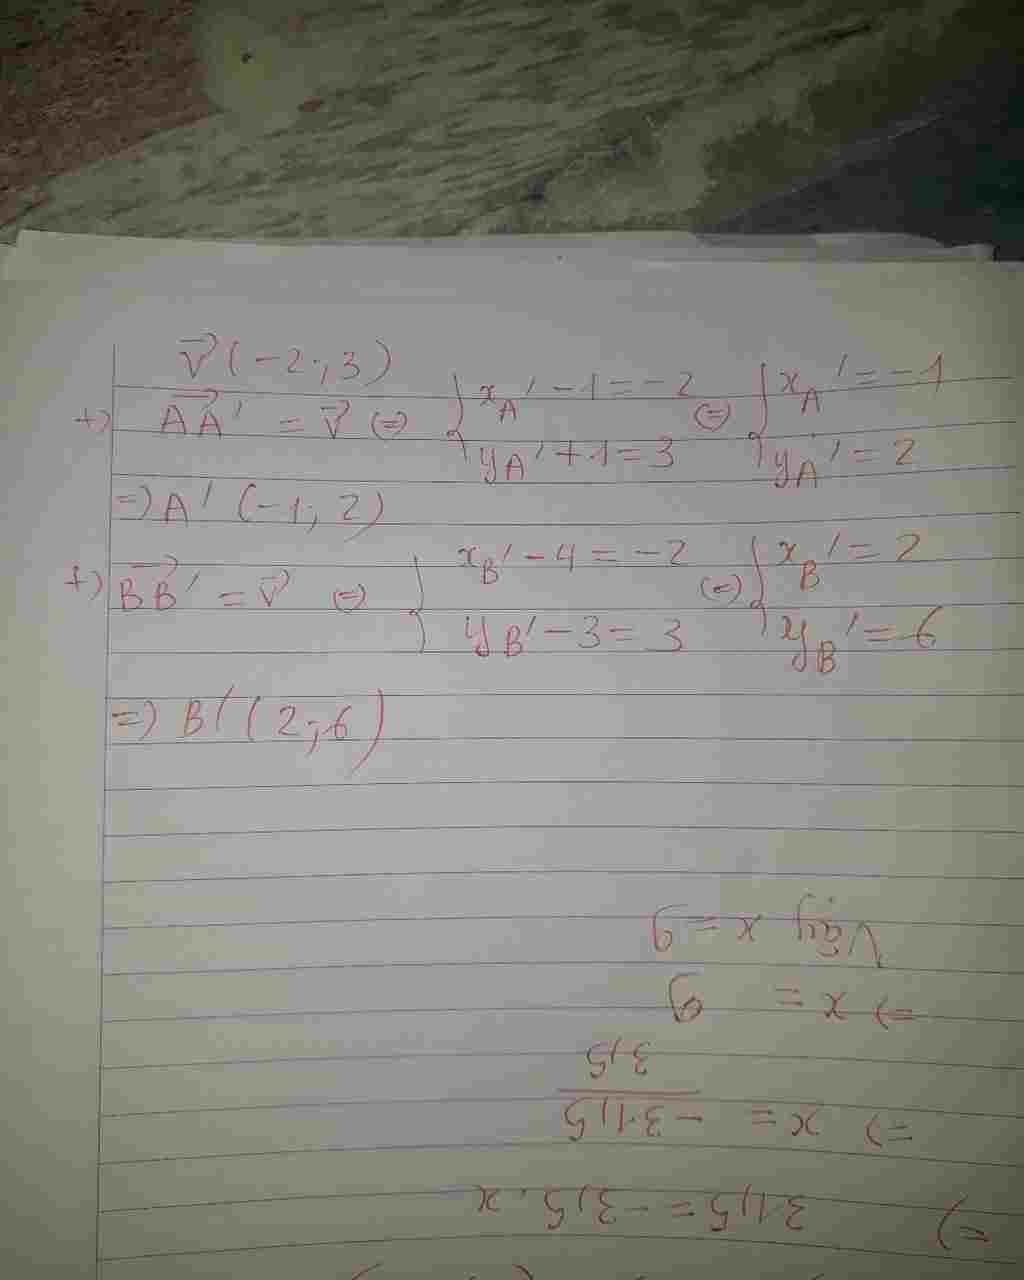 v⃗ (-2; 3)
+) AA'⃗ = v⃗ (=) { x_A' - 1 = -2 (=) { x_A' = -1
y_A' + 1 = 3 y_A' = 2
=) A' (-1; 2)
+) BB'⃗ = v⃗ (=) { x_B' - 4 = -2 (=) { x_B' = 2
y_B' - 3 = 3 y_B' = 6
=) B' (2; 6)
=) 31,5 = -3,5 . x
=) x = -31,5 / 3,5
=) x = 9
Vậy x = 9